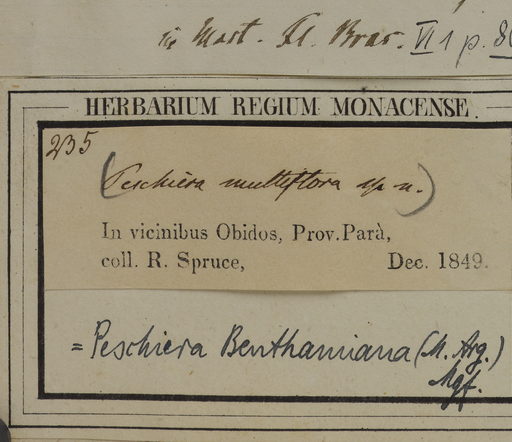 in Mart. Fl. Bras. VI 1 p.
HERBARIUM REGIUM MONACENSE.
235
(Peschiera multiflora sp n.)
In vicinibus Obidos, Prov. Parà,
coll. R. Spruce, Dec. 1849.
= Peschiera Benthamiana (M. Arg.)
Mgf.